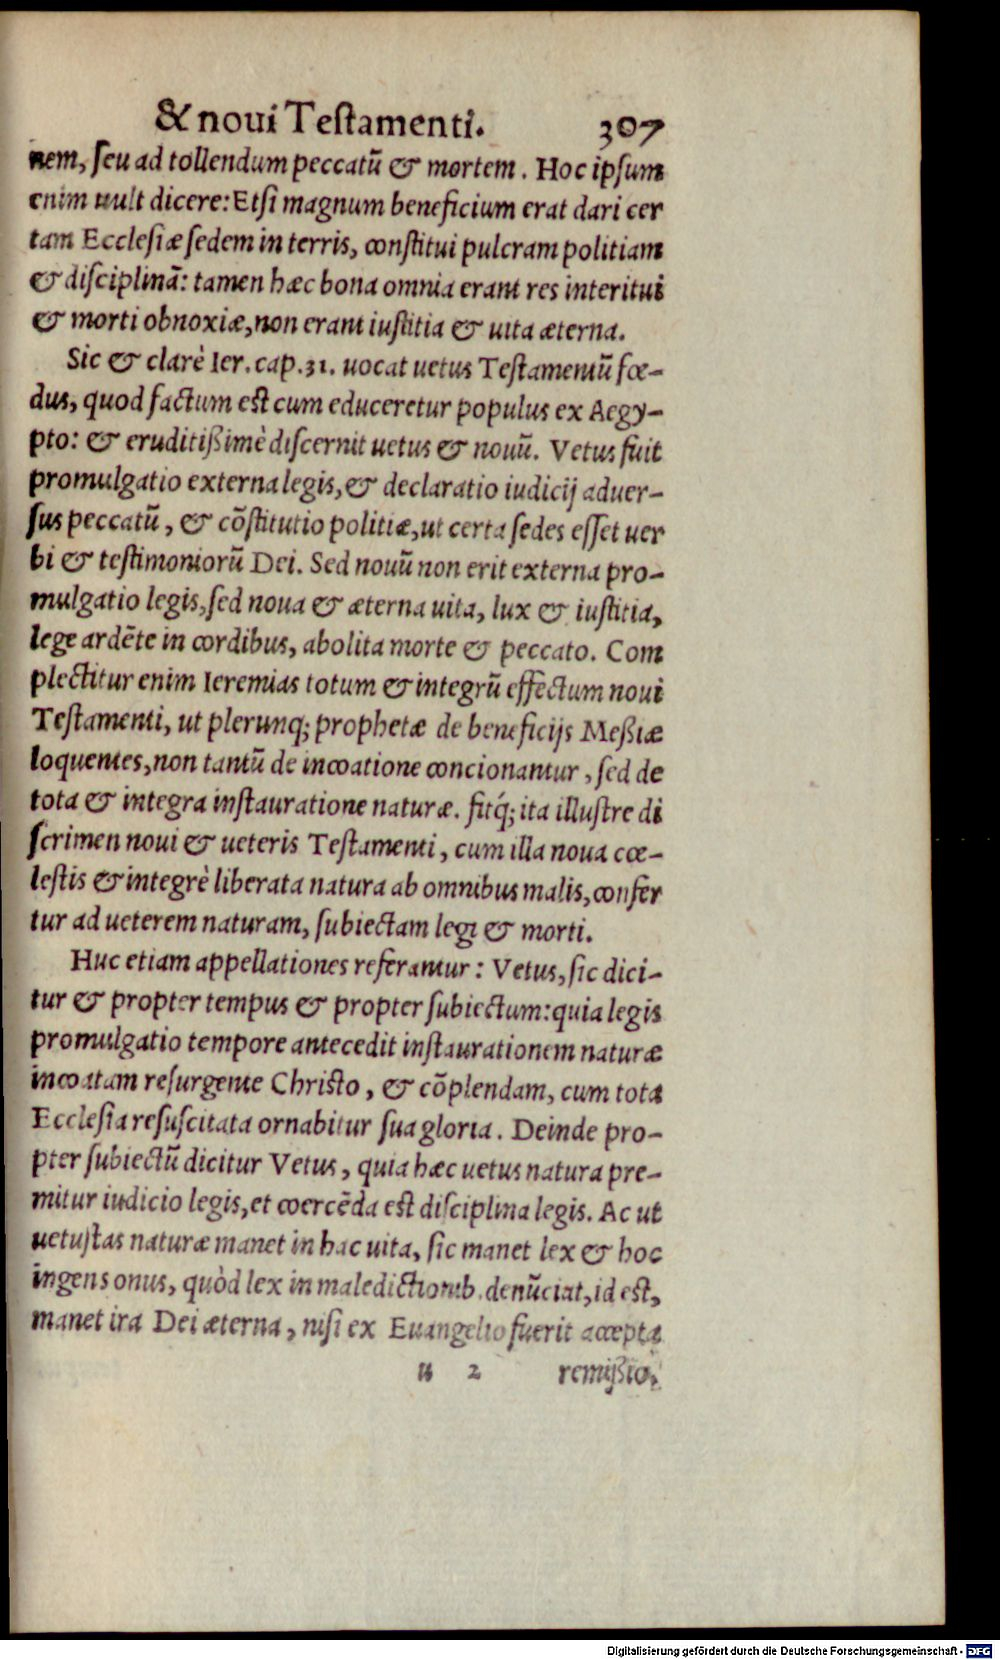 & noui Testamenti. 307
nem, ſeu ad tollendum peccatũ & mortem. Hoc ipſum
enim uult dicere: Etſi magnum beneficium erat dari cer
tam Eccleſiæ ſedem in terris, conſtitui pulcram politiam
& diſciplinã: tamen hæc bona omnia erant res interitui
& morti obnoxiæ, non erant iuſtitia & uita æterna.
Sic & clarè Ier. cap. 31. uocat uetus Teſtamentũ fœ-
dus, quod factum eſt cum educeretur populus ex Aegy-
pto: & eruditißimè diſcernit uetus & nouũ. Vetus fuit
promulgatio externa legis, & declaratio iudicij aduer-
ſus peccatũ, & cõſtitutio politiæ, ut certa ſedes eſſet uer
bi & teſtimoniorũ Dei. Sed nouũ non erit externa pro-
mulgatio legis, ſed noua & æterna uita, lux & iuſtitia,
lege ardẽte in cordibus, abolita morte & peccato. Com
plectitur enim Ieremias totum & integrũ effectum noui
Teſtamenti, ut plerunq; prophetæ de beneficijs Meßiæ
loquentes, non tantũ de incoatione concionantur, ſed de
tota & integra inſtauratione naturæ. fitq́; ita illuſtre di
ſcrimen noui & ueteris Teſtamenti, cum illa noua cœ-
leſtis & integrè liberata natura ab omnibus malis, confer
tur ad ueterem naturam, ſubiectam legi & morti.
Huc etiam appellationes referantur: Vetus, ſic dici-
tur & propter tempus & propter ſubiectum: quia legis
promulgatio tempore antecedit inſtaurationem naturæ
incoatam reſurgente Chriſto, & cõplendam, cum tota
Eccleſia reſuſcitata ornabitur ſua gloria. Deinde pro-
pter ſubiectũ dicitur Vetus, quia hæc uetus natura pre-
mitur iudicio legis, et coercẽda eſt diſciplina legis. Ac ut
uetuſtas naturæ manet in hac uita, ſic manet lex & hoc
ingens onus, quòd lex in maledictionib. denũciat, id eſt,
manet ira Dei æterna, niſi ex Euangelio fuerit accepta
u 2 remißio,
Digitalisierung gefördert durch die Deutsche Forschungsgemeinschaft - DFG